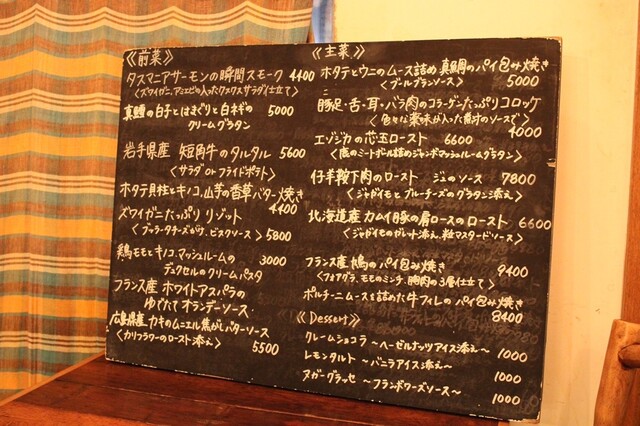 《前菜》
タスマニアサーモンの瞬間スモーク 4400
〈ズワイガニ、アエビの入ったクスクスサラダ仕立て〉
真鱈の白子とはまぐりと白ネギの 5000
クリームグラタン
岩手県産 短角牛のタルタル 5600
〈サラダ or フライドポテト〉
ホタテ貝柱とキノコ、山芋の香草バター焼き
4400
ズワイガニたっぷりリゾット
〈ブッラータチーズのせ、ビスクソース〉 5800
鶏モモとキノコ、マッシュルームの 3000
デュクセルのクリームパスタ
フランス産 ホワイトアスパラの
ゆでたて オランデーソース
広島県産 カキのムニエル 焦がしバターソース
〈カリフラワーのロースト添え〉 5500
《主菜》
ホタテとウニのムース詰め 真鯛のパイ包み焼き
〈ブールブランソース〉 5000
豚足・舌・耳・バラ肉のコラーゲンたっぷりコロッケ
〈色々な薬味が入ったソースで〉
4000
エゾジカの芯玉ロースト 6600
〈鹿のミートボール詰めジャンボマッシュルームグラタン〉
仔羊鞍下肉のロースト ジュのソース 7800
〈ジャガイモとブルーチーズのグラタン添え〉
北海道産 カムイ豚の肩ロースのロースト 6600
〈ジャガイモのガレット添え、粒マスタードソース〉
フランス産 鳩のパイ包み焼き 9400
〈フォアグラ、モモのミンチ、胸肉の3層仕立て〉
ポルチーニムースを詰めた牛フィレのパイ包み焼き
8400
《Dessert》
クレームショコラ 〜ヘーゼルナッツアイス添え〜 1000
レモンタルト 〜バニラアイス添え〜 1000
ヌガーグラッセ 〜フランボワーズソース〜 1000